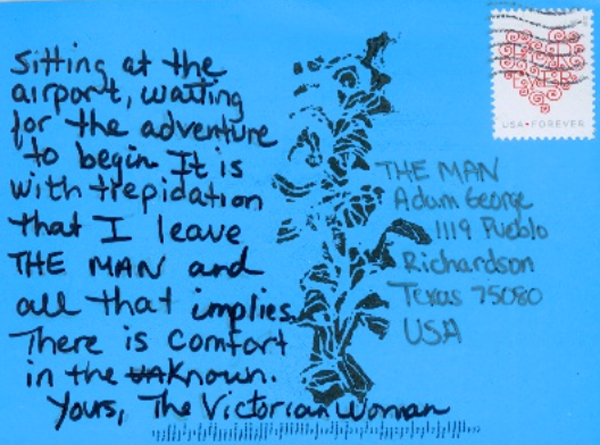 Sitting at the
airport, waiting
for the adventure
to begin. It is
with trepidation
that I leave
THE MAN and
all that implies.
There is comfort
in the unknown.
Yours, The Victorian Woman
THE MAN
Adam George
1119 Pueblo
Richardson
Texas 75080
USA
USA FOREVER